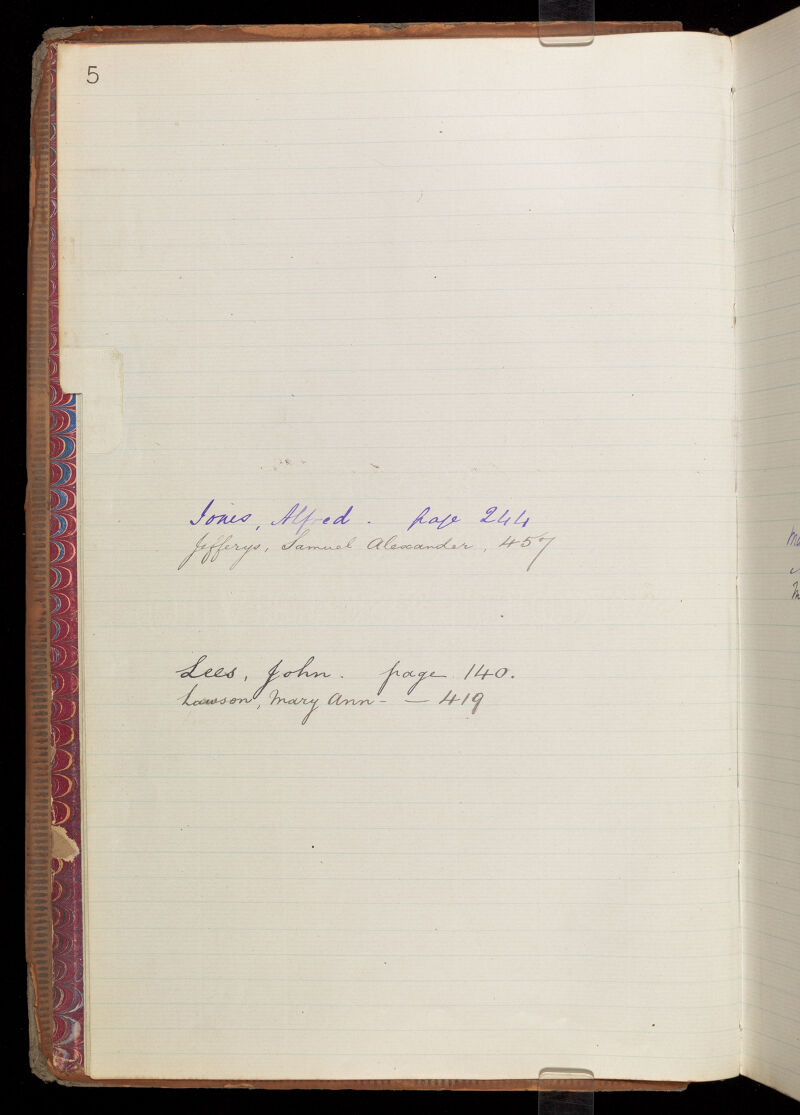 5
Jones, Alfred. page 244
Jefferys, Samuel Alexander, 457
Lees, John. page 140.
Lawson, Mary Ann - — 419